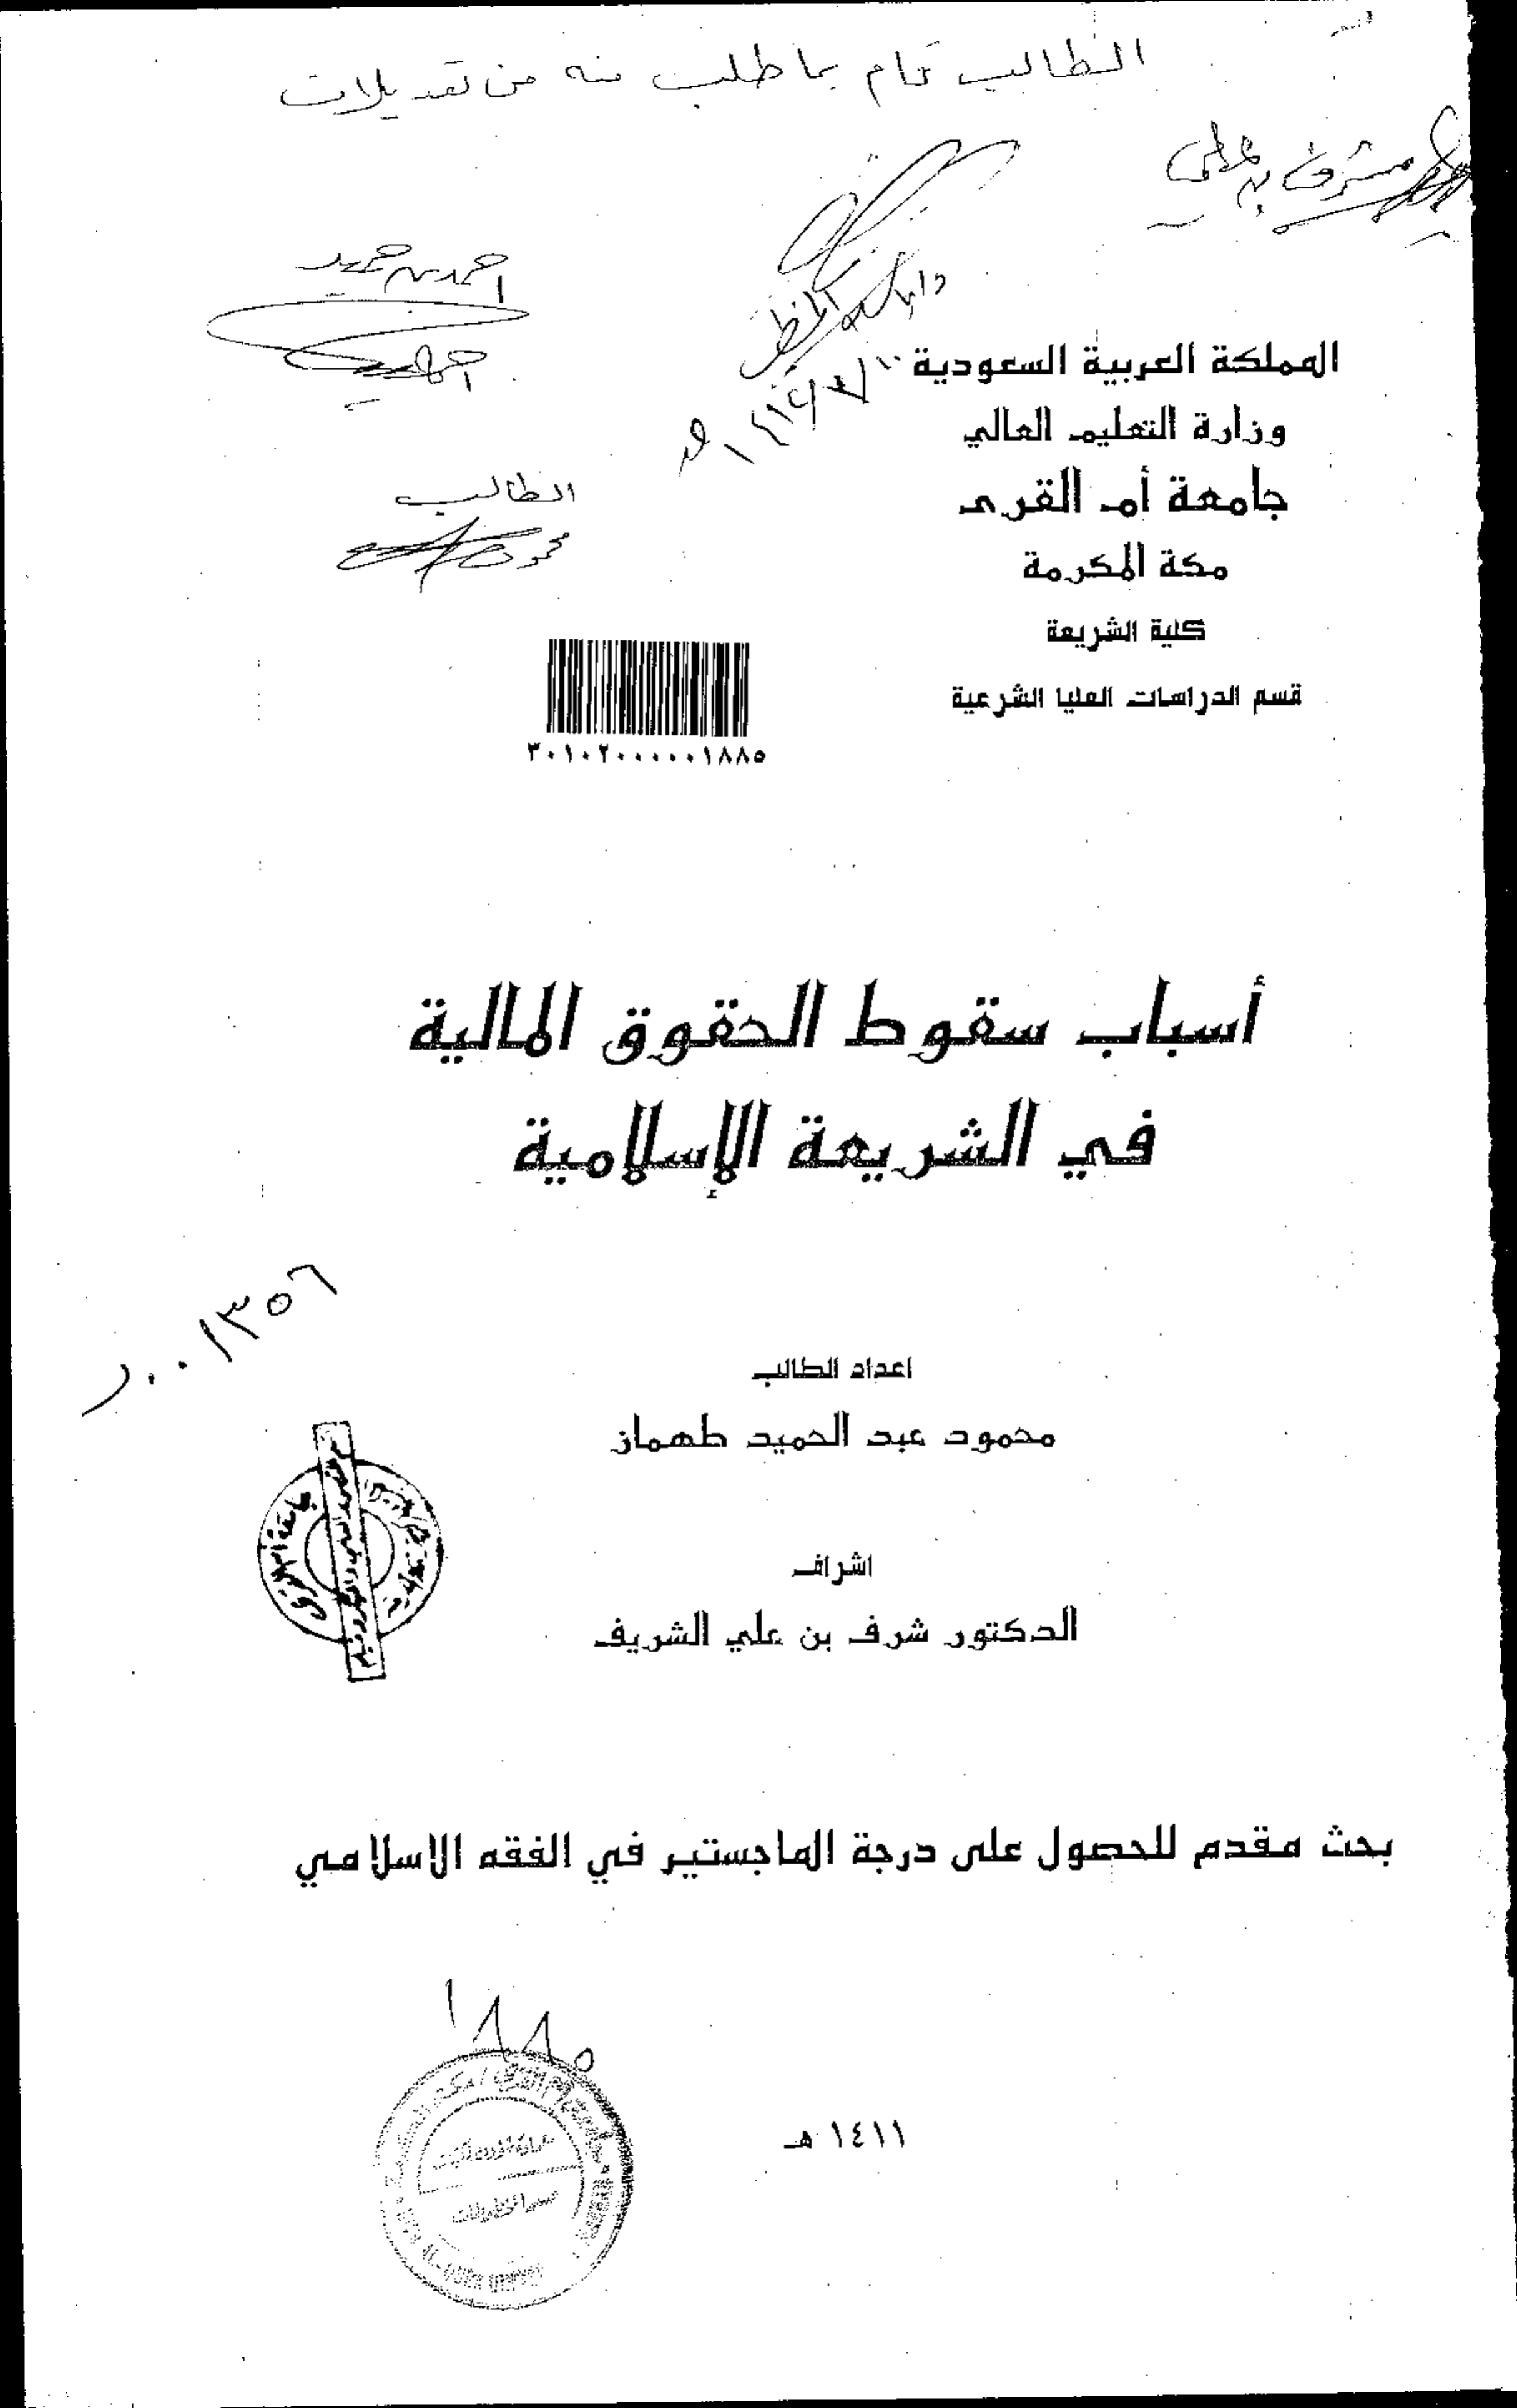 الطالب قام بما طلب منه من تعديلات
شرف بن علي
احمد بن حميد
المملكة العربية السعودية
وزارة التعليم العالي
جامعة أم القرى
الطالب
محمود
مكة المكرمة
كلية الشريعة
قسم الدراسات العليا الشرعية
٣٠١٠٢٠٠٠٠٠١٨٨٥
أسباب سقوط الحقوق المالية
في الشريعة الإسلامية
٠٠١٣٥٦
اعداد الطالب
محمود عبد الحميد طهماز
جامعة أم القرى
اشراف
الدكتور شرف بن علي الشريف
بحث مقدم للحصول على درجة الماجستير في الفقه الاسلامي
١٨٨٥
١٤١١ هـ